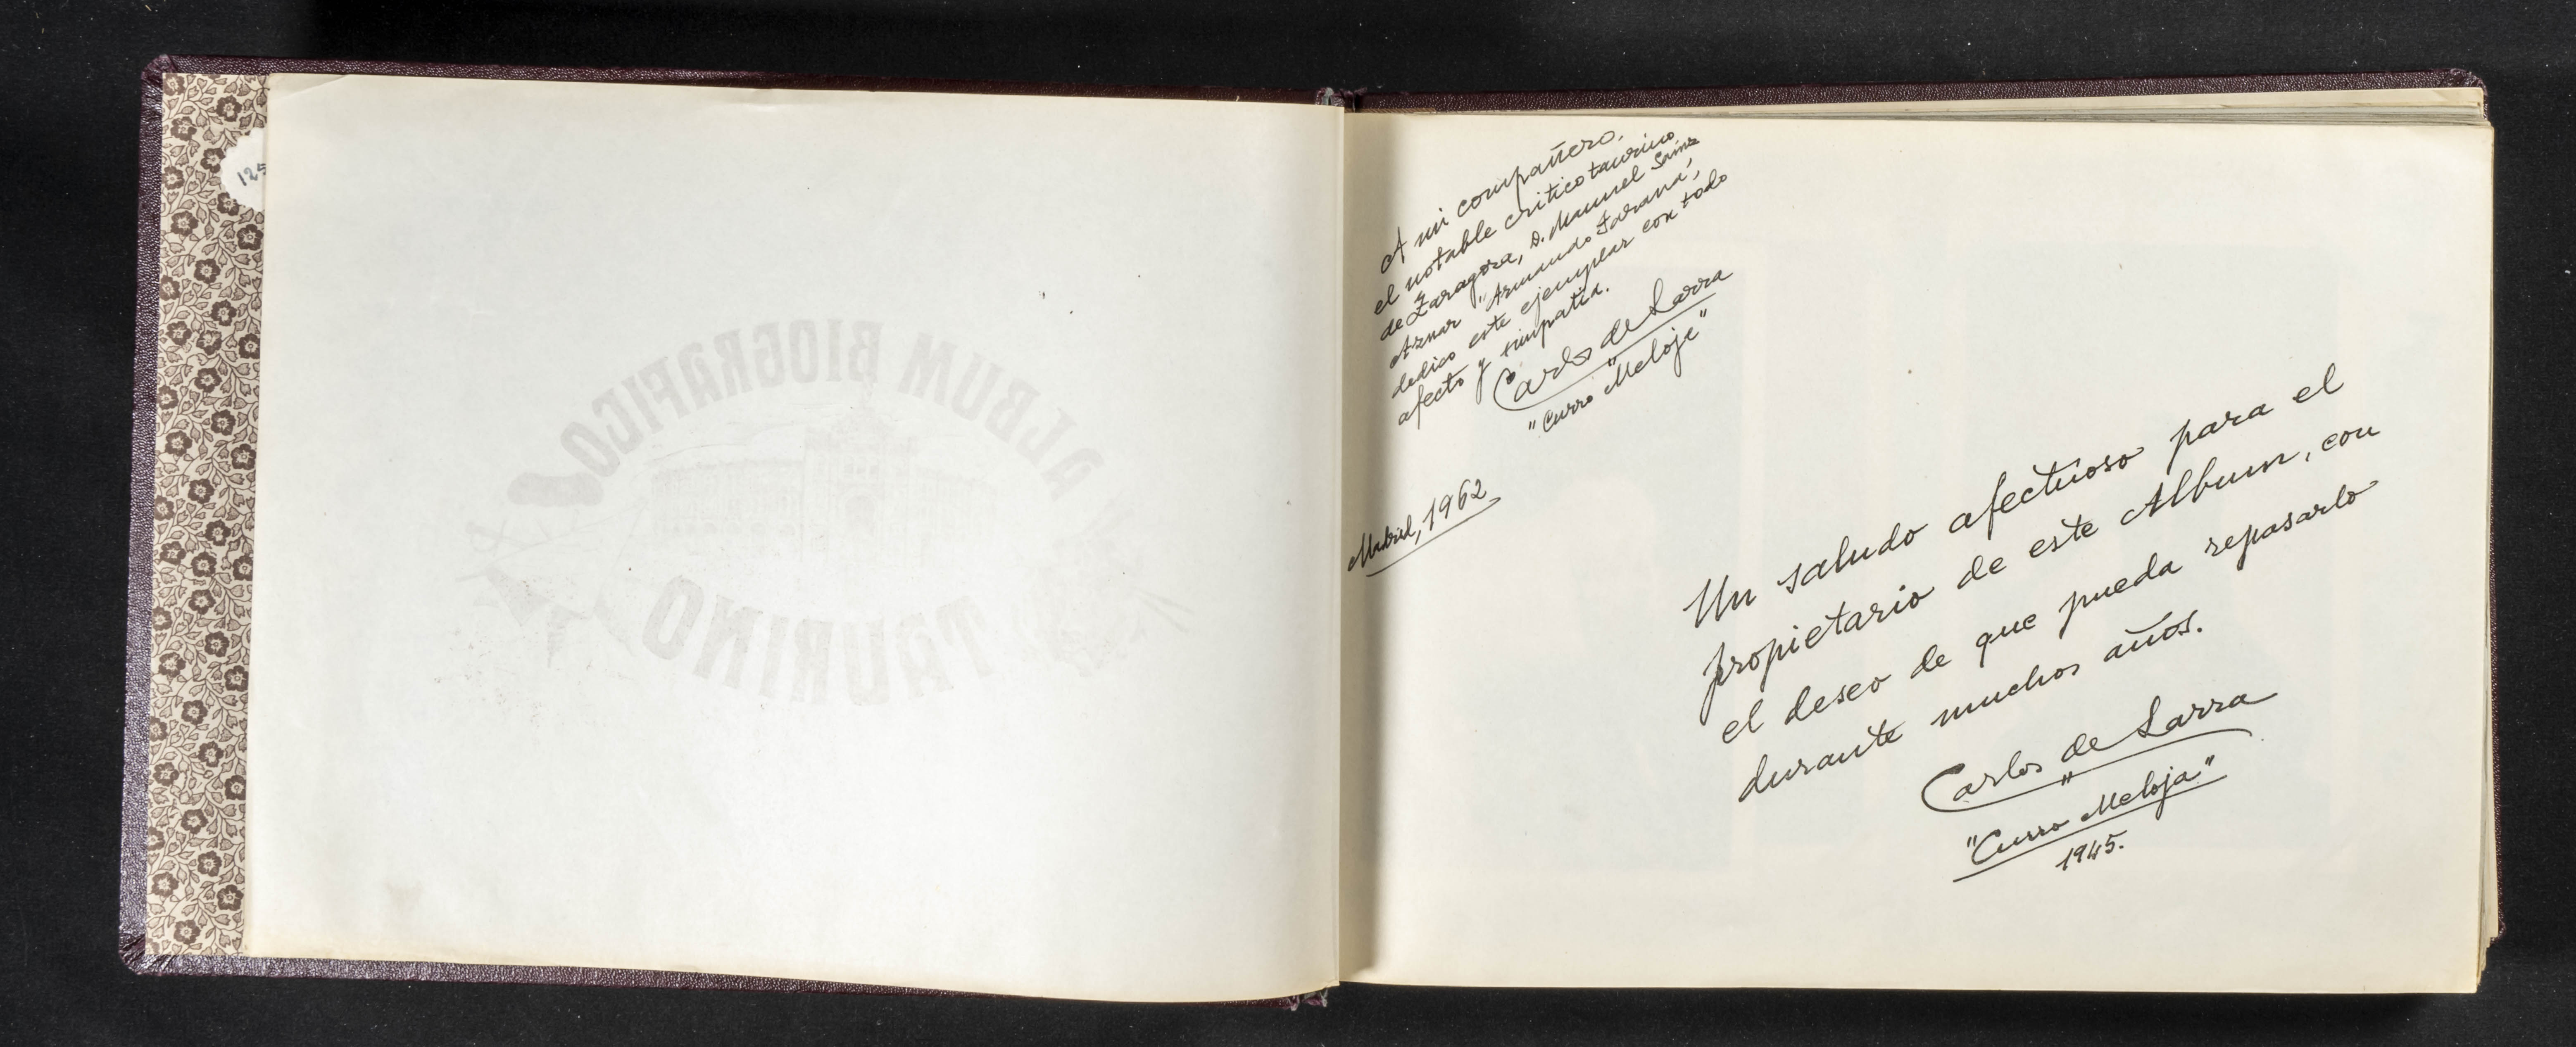 125
ALBUM BIOGRAFICO
TAURINO
A mi compañero,
el notable crítico taurino
de Zaragoza, D. Manuel Sainz
Aznar "Armando Jarana",
dedico este ejemplar con todo
afecto y simpatía.
Carlos de Larra
"Curro Meloja"
Madrid, 1962
Un saludo afectuoso para el
propietario de este Album, con
el deseo de que pueda repasarlo
durante muchos años.
Carlos de Larra
"Curro Meloja"
1945.